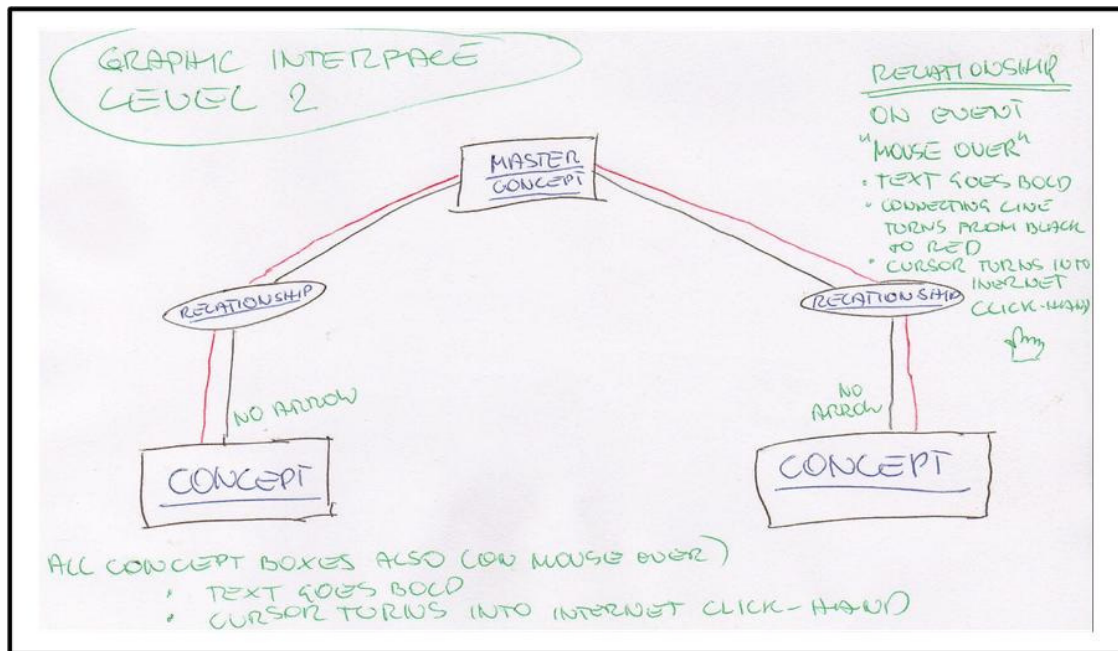 GRAPHIC INTERFACE
LEVEL 2
RELATIONSHIP
ON EVENT
"MOUSE OVER"
• TEXT GOES BOLD
• CONNECTING LINE
TURNS FROM BLACK
TO RED
• CURSOR TURNS INTO
INERNET
CLICK-HAND
MASTER
CONCEPT
RELATIONSHIP
RELATIONSHIP
NO ARROW
NO
ARROW
CONCEPT
CONCEPT
ALL CONCEPT BOXES ALSO (ON MOUSE OVER)
• TEXT GOES BOLD
• CURSOR TURNS INTO INTERNET CLICK-HAND